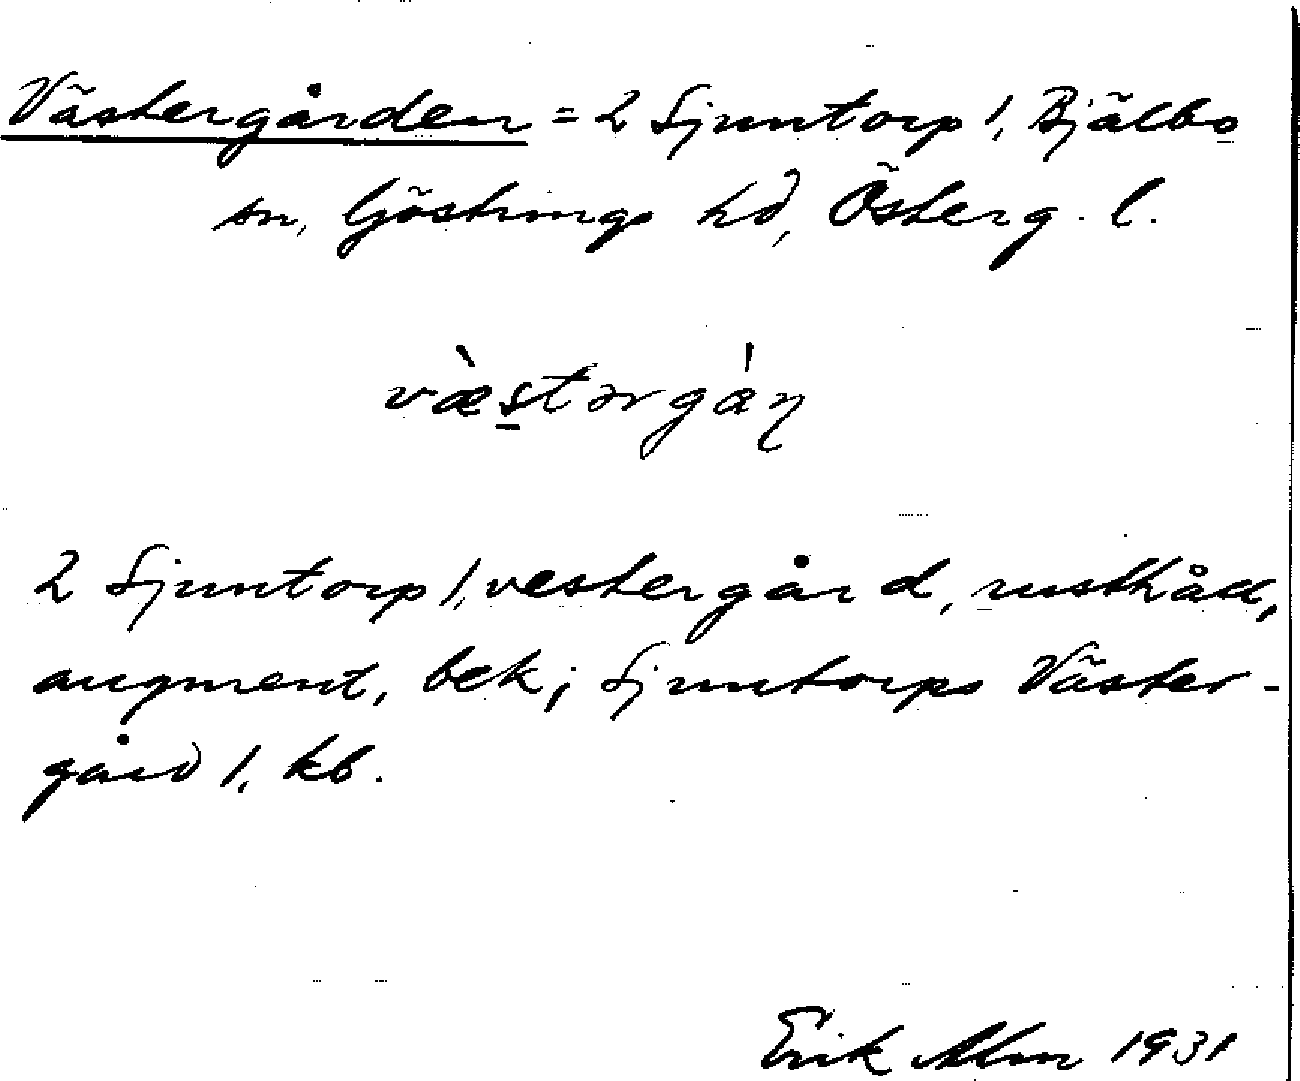 Västergården = 2 Sjuntorp 1, Bjälbo
sn, Göstrings hd, Österg. l.
væ̀stərgá̇ɳ
2 Sjuntorp 1, vestergård, rusthåll,
augment, bek; Sjuntorps Väster-
gård 1, kb.
Erik Alm 1931